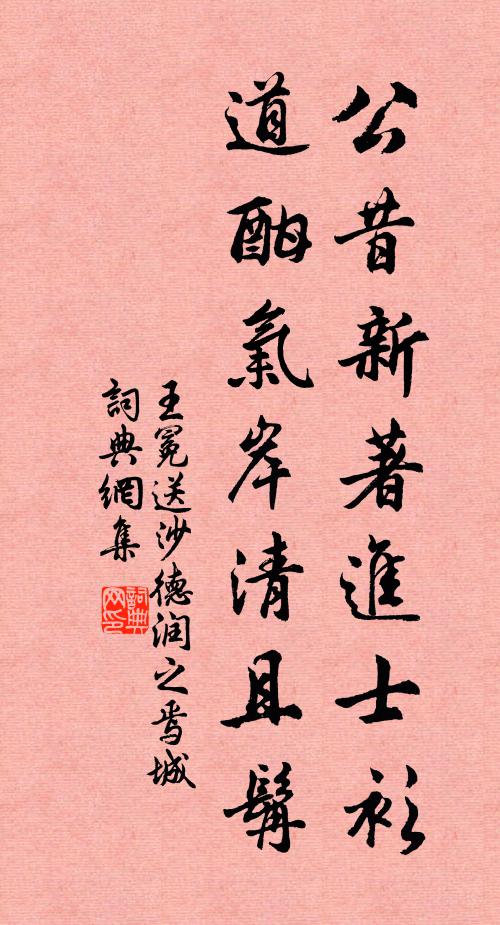 公昔新著進士衫
道酣氣岸清且髯
王冕送沙德润之焉城
詞典網集
詞典网印